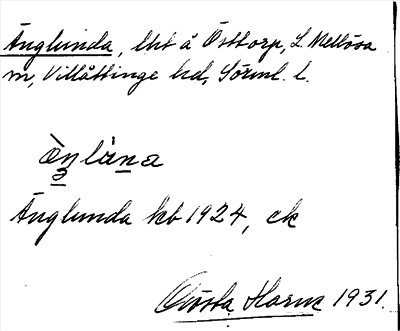 Änglunda, lht å Östtorp, L. Mellösa
m, Villåttinge hd, Sörml. l.
æ̀ŋlùna
Änglunda kb 1924, ek
Gösta Harne 1931.